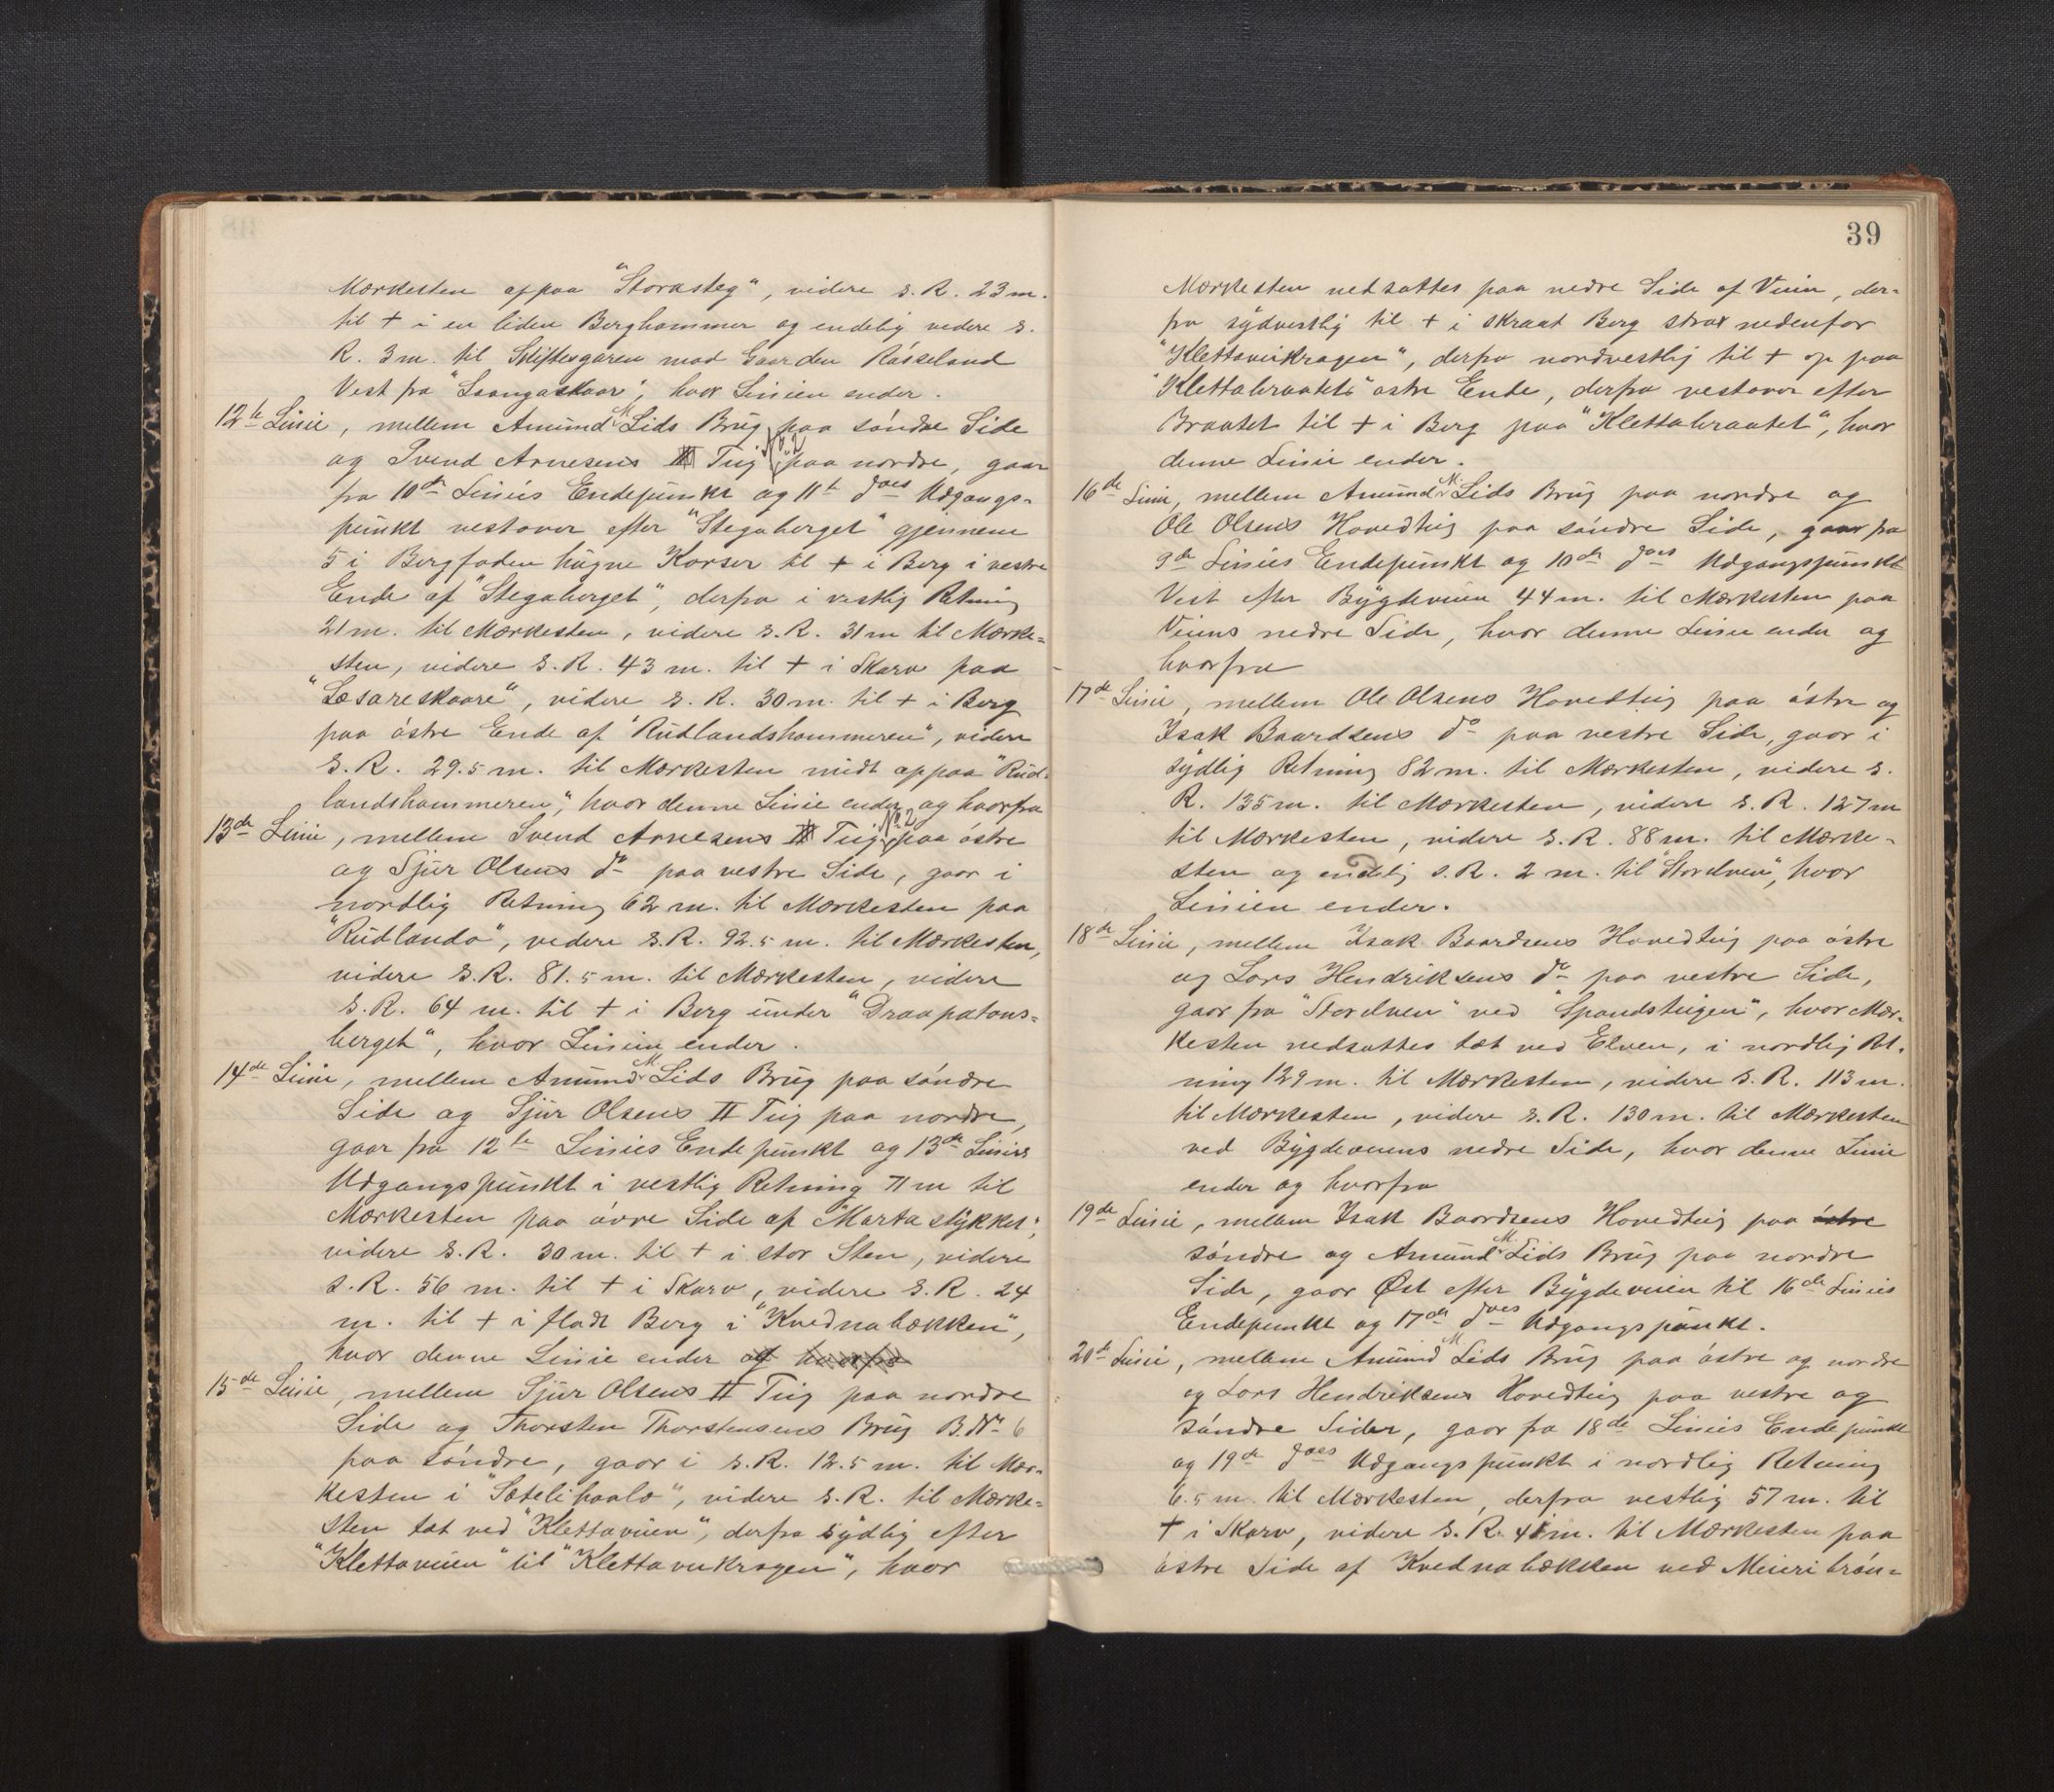 Mærkesten oppaa "Storasteg", videre s. R. 23 m.
til + i en liden Berghammer og endelig videre s.
R. 3 m. til Skiftesgaren mod Gaarden Røsseland
Vest fra "Laangaskaar", hvor Linien ender.
12te Linie, mellem Amund M. Lids Brug paa søndre Side
og Svend Arnesens Teig No. 2 paa nordre, gaar
fra 10de Linies Endepunkt og 11te does Udgangs-
punkt vestover efter "Stegaberget" gjennem
5 i Bergfoden hugne Korser til + i Berg i vestre
Ende af "Stegaberget", derfra i vestlig Retning
21 m. til Mærkesten, videre s. R. 31 m til Mærke-
sten, videre s. R. 43 m. til + i Skarv paa
"Læsareskaare", videre s. R. 30 m. til + i Berg
paa østre Ende af "Rudlandshammeren", videre
s. R. 29.5 m. til Mærkesten midt oppaa "Rud-
landshammeren", hvor denne Linie ender og hvorfra
13de Linie, mellem Svend Arnesens Teig No. 2 paa østre
og Sjur Olsens do paa vestre Side, gaar i
nordlig Retning 62 m. til Mærkesten paa
"Rudlando", videre s. R. 92.5 m. til Mærkesten,
videre s. R. 81.5 m. til Mærkesten, videre
s. R. 64 m. til + i Berg under "Draapatons-
berget", hvor Linien ender.
14de Linie, mellem Amund M. Lids Brug paa søndre
Side og Sjur Olsens II Teig paa nordre,
gaar fra 12te Linies Endepunkt og 13de Linies
Udgangspunkt i vestlig Retning 71 m til
Mærkesten paa øvre Side af "Martastykket",
videre s. R. 30 m. til + i stor Sten, videre
s. R. 56 m. til + i Skarv, videre s. R. 24
m. til + i fladt Berg i "Kvednabækken",
hvor denne Linie ender og hvorfra
15de Linie, mellem Sjur Olsens II Teig paa nordre
Side og Thorsten Thorstensens Brug B. No. 6
paa søndre, gaar i s. R. 12.5 m. til Mær-
kesten i "Sætelihaalo", videre s. R. til Mærke-
sten tæt ved "Klettaveien", derfra sydlig efter
"Klettaveien" til "Klettaveikragen", hvor
39
Mærkesten nedsattes paa nedre Side af Veien, der-
fra sydvestlig til + i skraat Berg strax nedenfor
"Klettaveikragen", derfra nordvestlig til + op paa
"Klettabraatets" østre Ende, derfra vestover efter
Braatet til + i Berg paa "Klettabraatet", hvor
denne Linie ender.
16de Linie, mellem Amund M. Lids Brug paa nordre og
Ole Olsens Hovedteig paa søndre Side, gaar fra
9de Linies Endepunkt og 10de does Udgangspunkt
Vest efter Bygdeveien 44 m. til Mærkesten paa
Veiens nedre Side, hvor denne Linie ender og
hvorfra
17de Linie, mellem Ole Olsens Hovedteig paa østre og
Isak Baardsens do paa vestre Side, gaar i
sydlig Retning 82 m. til Mærkesten, videre s.
R. 135 m. til Mærkesten, videre s. R. 127 m
til Mærkesten, videre s. R. 88 m. til Mærke-
sten og endelig s. R. 2 m. til "Storelven", hvor
Linien ender.
18de Linie, mellem Isak Baardsens Hovedteig paa østre
og Lars Hendriksens do paa vestre Side,
gaar fra "Storelven" ved "Spandsteigen", hvor Mær-
kesten nedsattes tæt ved Elven, i nordlig Ret-
ning 129 m. til Mærkesten, videre s. R. 113 m.
til Mærkesten, videre s. R. 130 m. til Mærkesten
ved Bygdeveiens nedre Side, hvor denne Linie
ender og hvorfra
19de Linie, mellem Isak Baardsens Hovedteig paa østre
søndre og Amund M. Lids Brug paa nordre
Side, gaar Øst efter Bygdeveien til 16de Linies
Endepunkt og 17de does Udgangspunkt.
20de Linie, mellem Amund M. Lids Brug paa østre og nordre
og Lars Hendriksens Hovedteig paa vestre og
søndre Sider, gaar fra 18de Linies Endepunkt
og 19de does Udgangspunkt i nordlig Retning
6.5 m. til Mærkesten, derfra vestlig 57 m. til
+ i Skarv, videre s. R. 41 m. til Mærkesten paa
østre Side af Kvednabækken ved Meieribrøn-